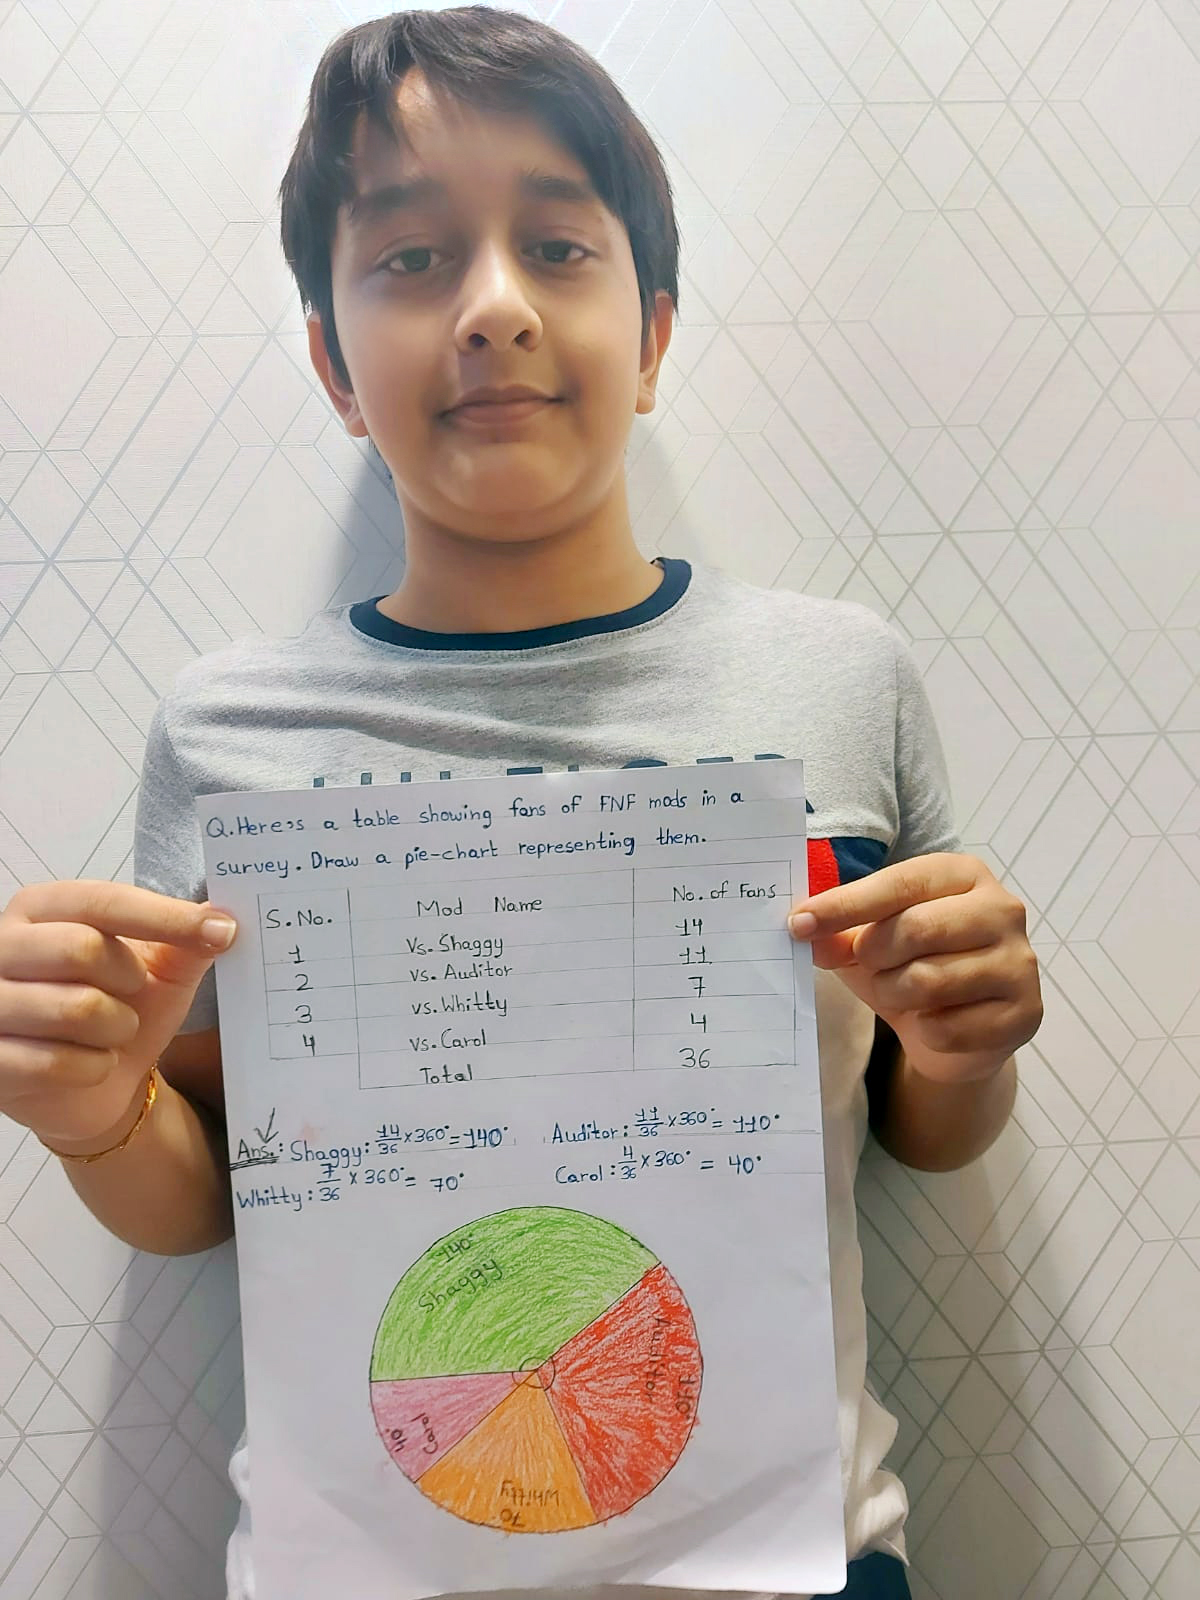 Q.Here's a table showing fans of FNF mods in a
survey. Draw a pie-chart representing them.
S.No. Mod Name No. of Fans
1 Vs. Shaggy 14
2 vs. Auditor 11
3 vs. Whitty 7
4 vs. Carol 4
Total 36
Ans.: Shaggy: 14/36 × 360° = 140° Auditor: 11/36 × 360° = 110°
Whitty: 7/36 × 360° = 70° Carol: 4/36 × 360° = 40°
140°
Shaggy
Auditor
110°
Carol
40°
Whitty
70°